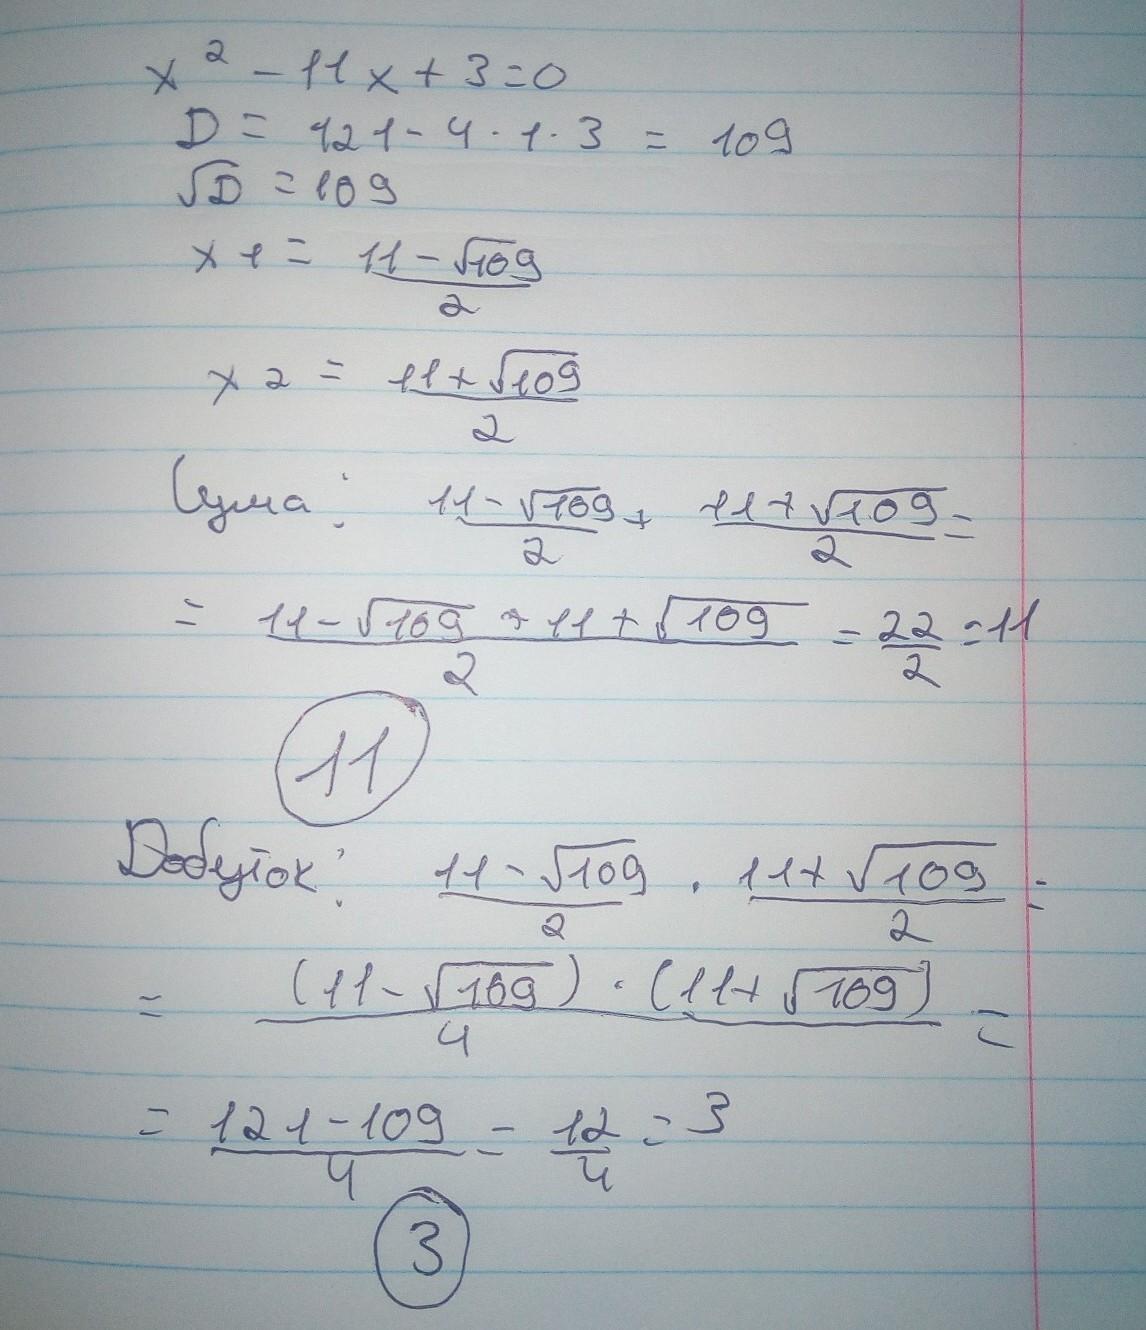 x² - 11x + 3 = 0
D = 121 - 4 · 1 · 3 = 109
√D = 109
x1 = (11 - √109)/2
x2 = (11 + √109)/2
Сума: (11 - √109)/2 + (11 + √109)/2 =
= (11 - √109 + 11 + √109)/2 = 22/2 = 11
11
Добуток: (11 - √109)/2 · (11 + √109)/2 =
= ((11 - √109) · (11 + √109))/4 =
= (121 - 109)/4 = 12/4 = 3
3